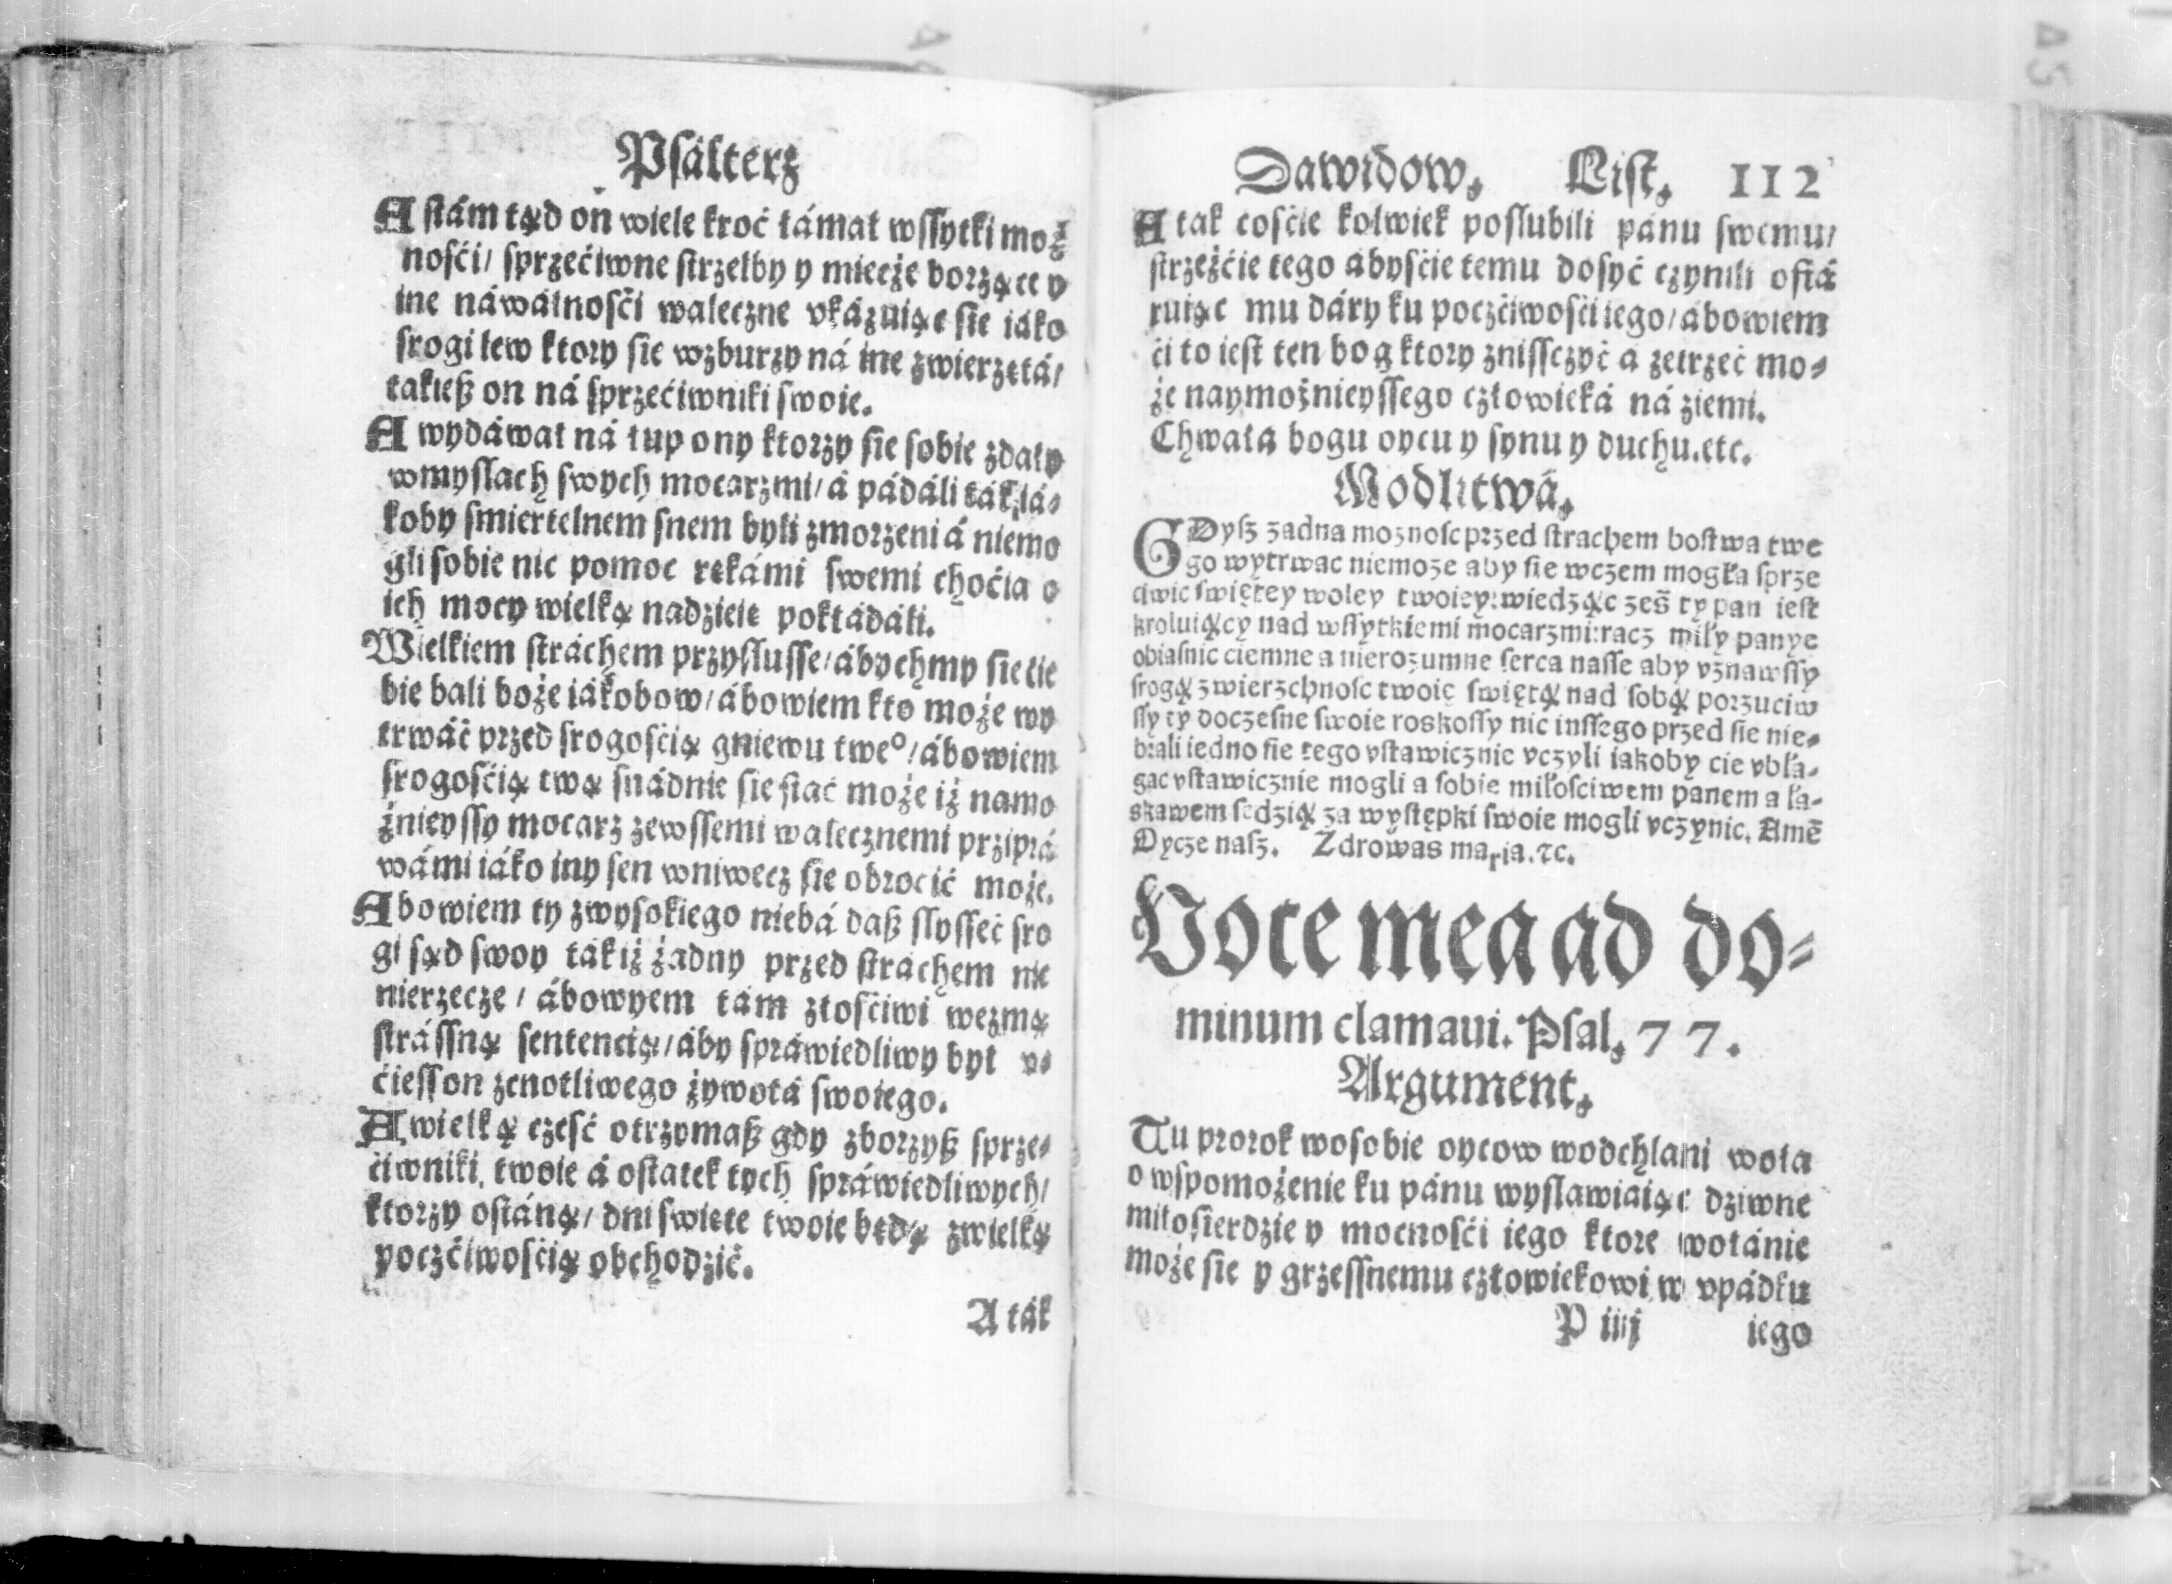 Psálterz
A stám tąd on wiele kroć łámał wssytki moż
nośći/ sprzećiwne strzelby y miecże borzące y
ine náwálnośći waleczne vkázuiąc sie iáko
srogi lew ktory sie wzburzy ná ine zwierzętá/
takież on ná sprzećiwniki swoie.
A wydáwał ná łup ony ktorzy sie sobie zdáły
wmyslach swych mocarzmi/ á pádáli ták iá⸗
koby smiertelnem snem byli zmorzeni á niemo
gli sobie nic pomoc rękámi swemi choćia o
ich mocy wielką nadzieię pokłádáli.
Wielkiem stráchem przyslusse/ ábychmy sie cie
bie bali boże iákobow/ ábowiem kto może wy
trwáć przed srogośćią gniewu twe°/ ábowiem
srogośćią twą snádnie sie stać może iż namo
żnieyssy mocarz zewssemi walecznemi prziprá
wámi iáko iny sen wniwecz sie obrocić może.
Abowiem ty zwysokiego niebá daß slysseć sro
gi sąd swoy tak iż żadny przed stráchem nie
nierzecze/ ábowyem tám złośćiwi wezmą
strássną sentencią/ áby spráwiedliwy był v⸗
ćiesson zcnotliwego żywotá swoiego.
A wielką cześć otrzymaß gdy zborzyß sprze⸗
ćiwniki twoie á ostatek tych spráwiedliwych/
ktorzy ostáną/ dni swięte twoie będą zwielką
poczćiwośćią obchodzić.
A ták
Dawidow. List. 112
A tak cosćie kolwiek poslubili pánu swemu/
strzeżćie tego ábysćie temu dosyć czynili ofiá
ruiąc mu dáry ku poczćiwośći iego/ ábowiem
ći to iest ten bog ktory znissczyć a zetrzeć mo⸗
że naymożnieyssego człowieká ná ziemi.
Chwałá bogu oycu y synu y duchu. etc.
Modlitwá.
GDysz zadna moznosc przed strachem bostwa twe
go wytrwac niemoze aby sie wczem mogła sprze
ciwic swiętey woley twoiey: wiedząc zes̃ ty pan iest
kroluiący nad wssytkiemi mocarzmi: racz miły panye
obiasnic ciemne a nierozumne serca nasse aby vznawssy
srogą zwierzchnosc twoię swiętą nad sobą porzuciw
ssy ty doczesne swoie roskossy nic inssego przed sie nie⸗
brali iedno sie tego vstawicznie vczyli iakoby cie vbła⸗
gac vstawicznie mogli a sobie miłosciwem panem a ła⸗
skawem sedzią za występki swoie mogli vczynic. Amē
Oycze nasz. Zdrowas maria. ⁊c.
Voce mea ad do⸗
minum clamaui. Psal. 77.
Argument.
Tu prorok wosobie oycow wodchlani woła
o wspomożenie ku pánu wyslawiaiąc dziwne
miłosierdzie y mocnośći iego ktore wołánie
może sie y grzessnemu człowiekowi w vpádku
P iiij iego